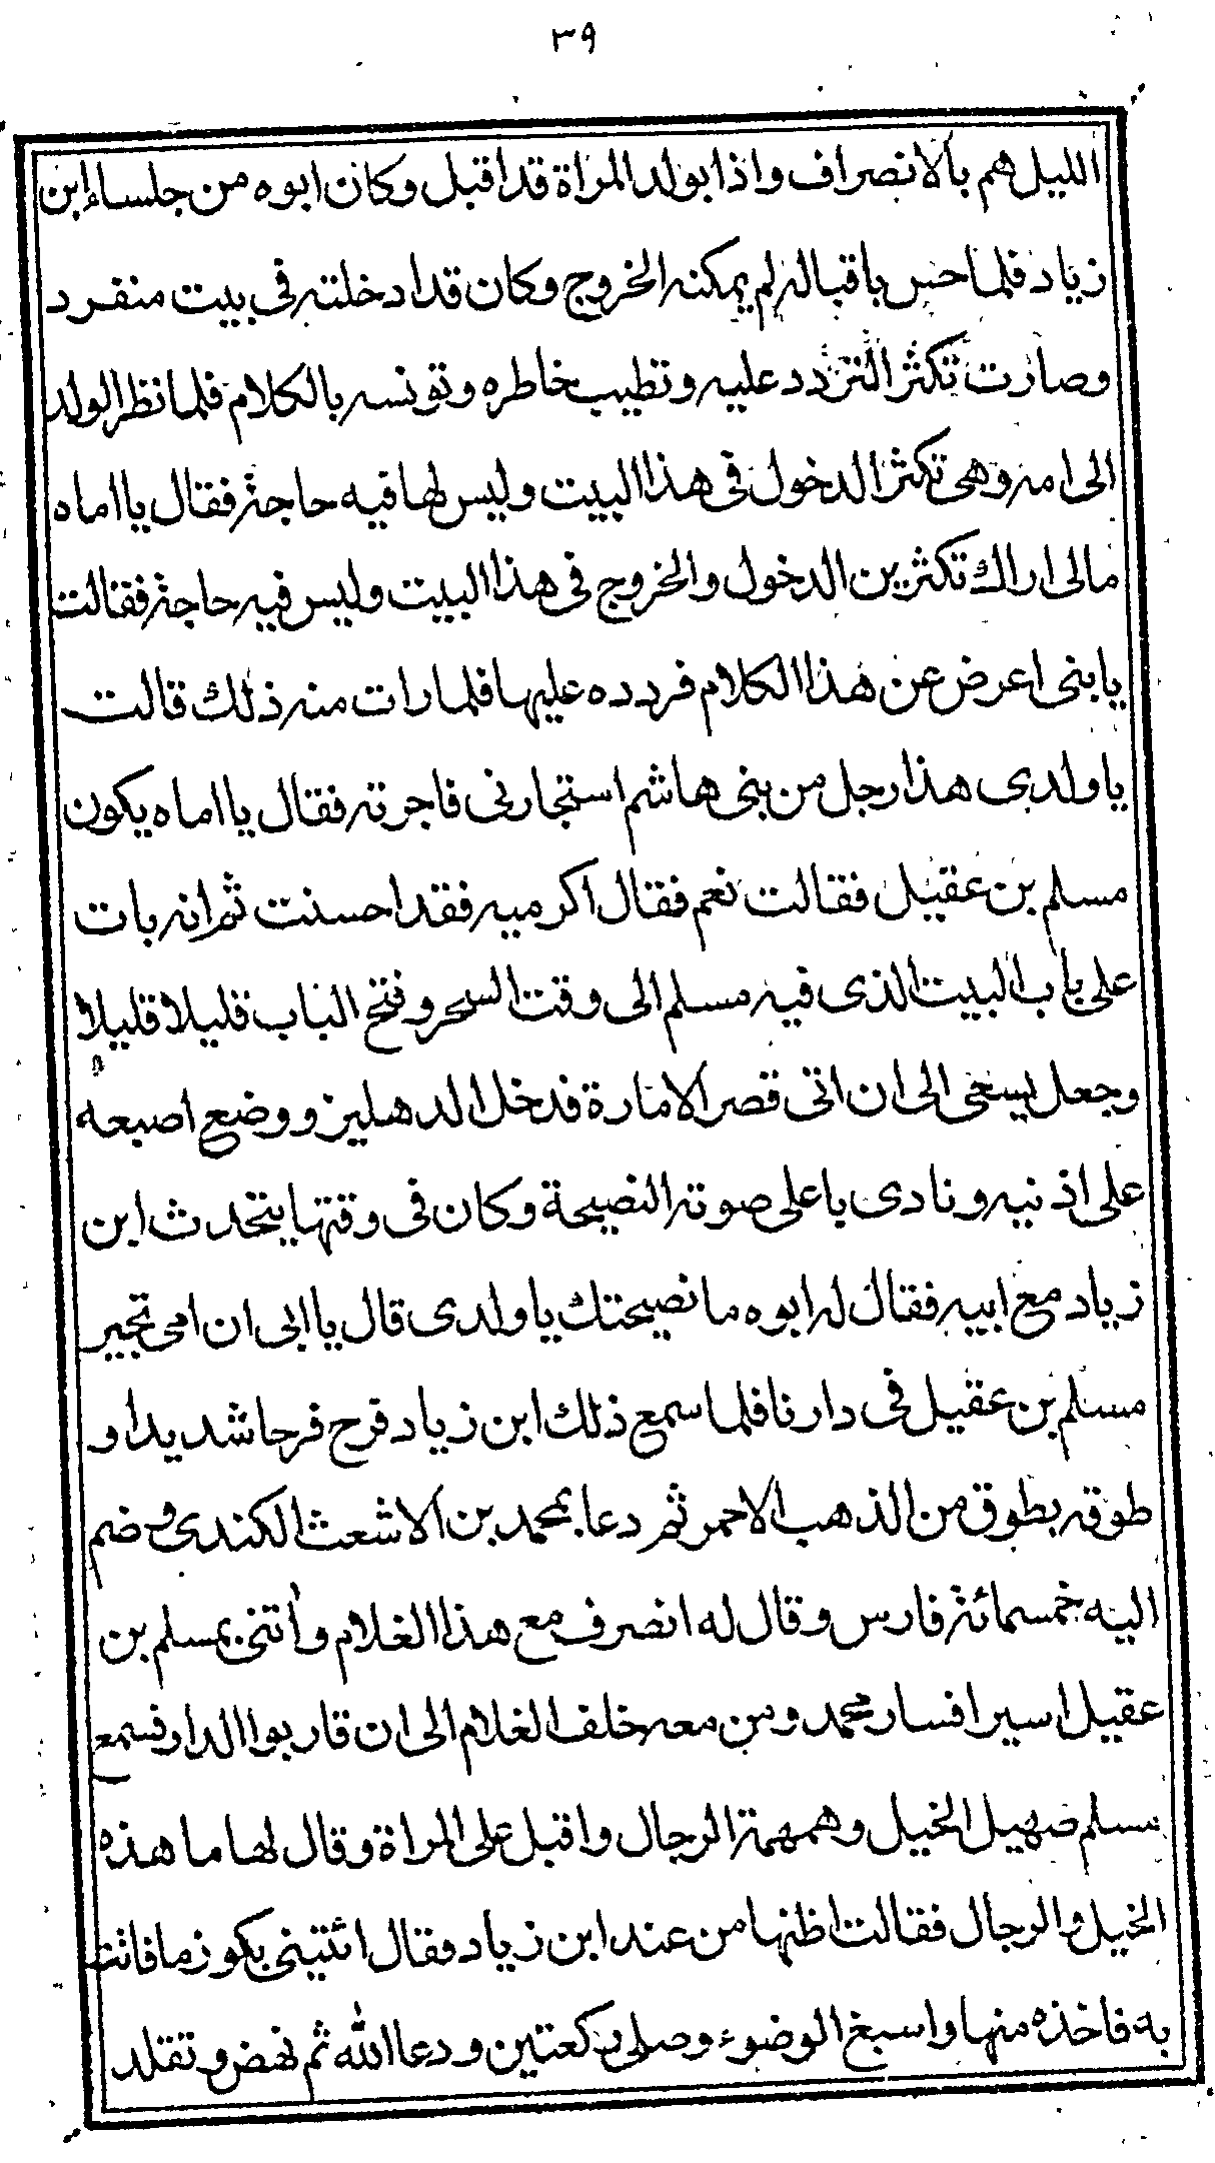 ٣٩
الليل هم بالانصراف واذا بولد المراة قد اقبل وكان ابوه من جلساء ابن
زياد فلما حس باقباله لم يمكنه الخروج وكان قد ادخلته في بيت منفرد
وصارت تكثر التردد عليه وتطيب خاطره وتونسه بالكلام فلما نظر الولد
الى امه وهى تكثر الدخول في هذا البيت وليس لها فيه حاجة فقال يا اماه
مالى اراك تكثرين الدخول والخروج في هذا البيت وليس فيه حاجة فقالت
يا بنى اعرض عن هذا الكلام فردده عليها فلما رات منه ذلك قالت
يا ولدى هذا رجل من بنى هاشم استجارنى فاجرته فقال يا اماه يكون
مسلم بن عقيل فقالت نعم فقال اكرميه فقد احسنت ثم انه بات
على باب البيت الذى فيه مسلم الى وقت السحر وفتح الباب قليلا قليلا
وجعل يسعى الى ان اتى قصر الامارة فدخل الدهليز ووضع اصبعه
على اذنيه ونادى باعلى صوته النصيحة وكان في وقتها يتحدث ابن
زياد مع ابيه فقال له ابوه ما نصيحتك يا ولدى قال يا ابى ان امى تجير
مسلم بن عقيل في دارنا فلما سمع ذلك ابن زياد فرح فرحا شديدا و
طوقه بطوق من الذهب الاحمر ثم دعا بمحمد بن الاشعث الكندى وضم
اليه خمسمائة فارس وقال له انصرف مع هذا الغلام وأتنى بمسلم بن
عقيل اسيرا فسار محمد ومن معه خلف الغلام الى ان قاربوا الدار فسمع
مسلم صهيل الخيل وهمهمة الرجال واقبل على المراة وقال لها ما هذه
الخيل والرجال فقالت اظنها من عند ابن زياد فقال ائتينى بكوز ما فاتت
به فاخذه منها واسبغ الوضوء وصلى ركعتين ودعا الله ثم نهض وتقلد